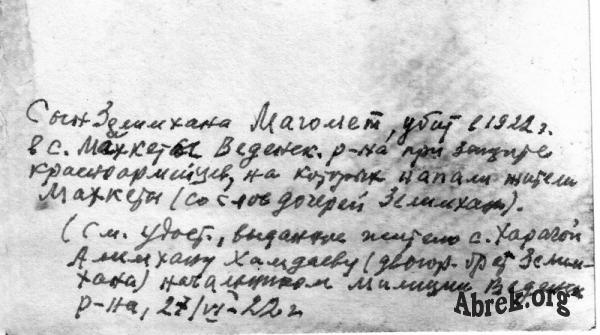 Сын Зелимхана Магомет, убит в 1922 г.
в с. Махкеты Веденск. р-на при защите
красноармейцев, на которых напали жители
Махкеты (со слов дочерей Зелимхана).
(См. удост., выданное жителю с. Харачой
Алимхану Хамдаеву (двоюр. брат Зелим-
хана) начальником милиции Веденск
р-на, 27/VI-22 г
Abrek.org